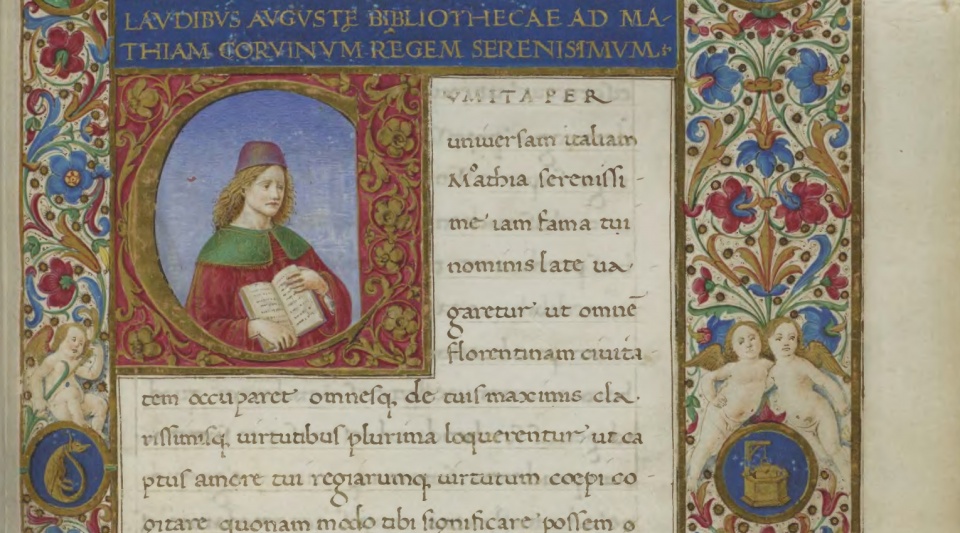 LAVDIBVS AVGVSTĘ BIBLIOTHECAE AD MA-
THIAM CORVINVM REGEM SERENISSIMVM:
VM ITA PER
universam italiam
Mathia serenissi-
me iam fama tui
nominis late va-
garetur ut omnē
florentinam civita
tem occuparet omnesq, de tuis maximis cla-
rissimisq, virtutibus plurima loquerentur, ut ca
ptus amore tui regiarumq, virtutum coepi co-
gitare quonam modo tibi significare possem